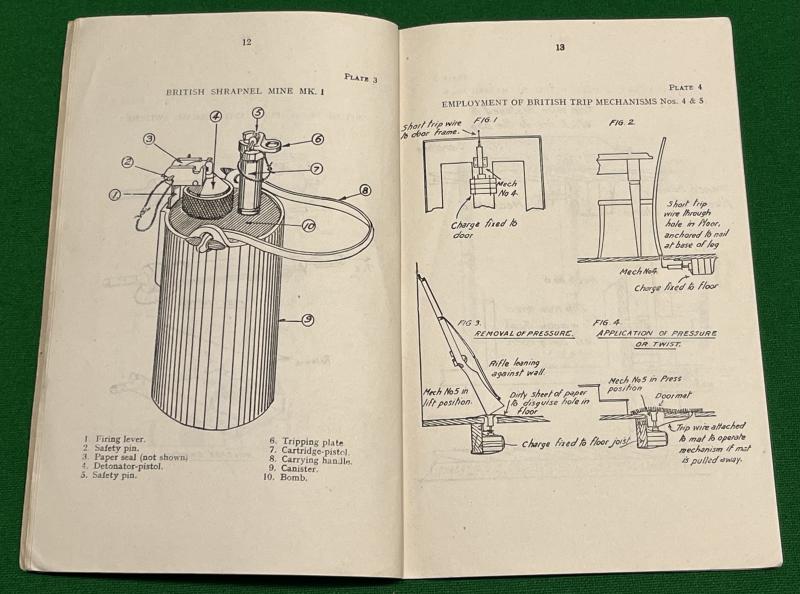 12
PLATE 3
BRITISH SHRAPNEL MINE MK. I
1
2
3
4
5
6
7
8
9
10
1. Firing lever.
2. Safety pin.
3. Paper seal (not shown)
4. Detonator-pistol.
5. Safety pin.
6. Tripping plate
7. Cartridge-pistol.
8. Carrying handle.
9. Canister.
10. Bomb.
13
PLATE 4
EMPLOYMENT OF BRITISH TRIP MECHANISMS Nos. 4 & 5
FIG. 1
Short trip wire
to door frame.
Mech
No 4.
Charge fixed to
door
FIG. 2
Short trip
wire through
hole in floor,
anchored to nail
at base of leg
Mech No4.
Charge fixed to floor
FIG 3.
REMOVAL OF PRESSURE.
Rifle leaning
against wall.
Mech No5 in
lift position.
Dirty sheet of paper
to disguise hole in
Floor
Charge fixed to floor joist
FIG. 4.
APPLICATION OF PRESSURE
OR TWIST.
Mech No5 in Press
position
Doormat
Trip wire attached
to mat to operate
mechanism if mat
is pulled away.